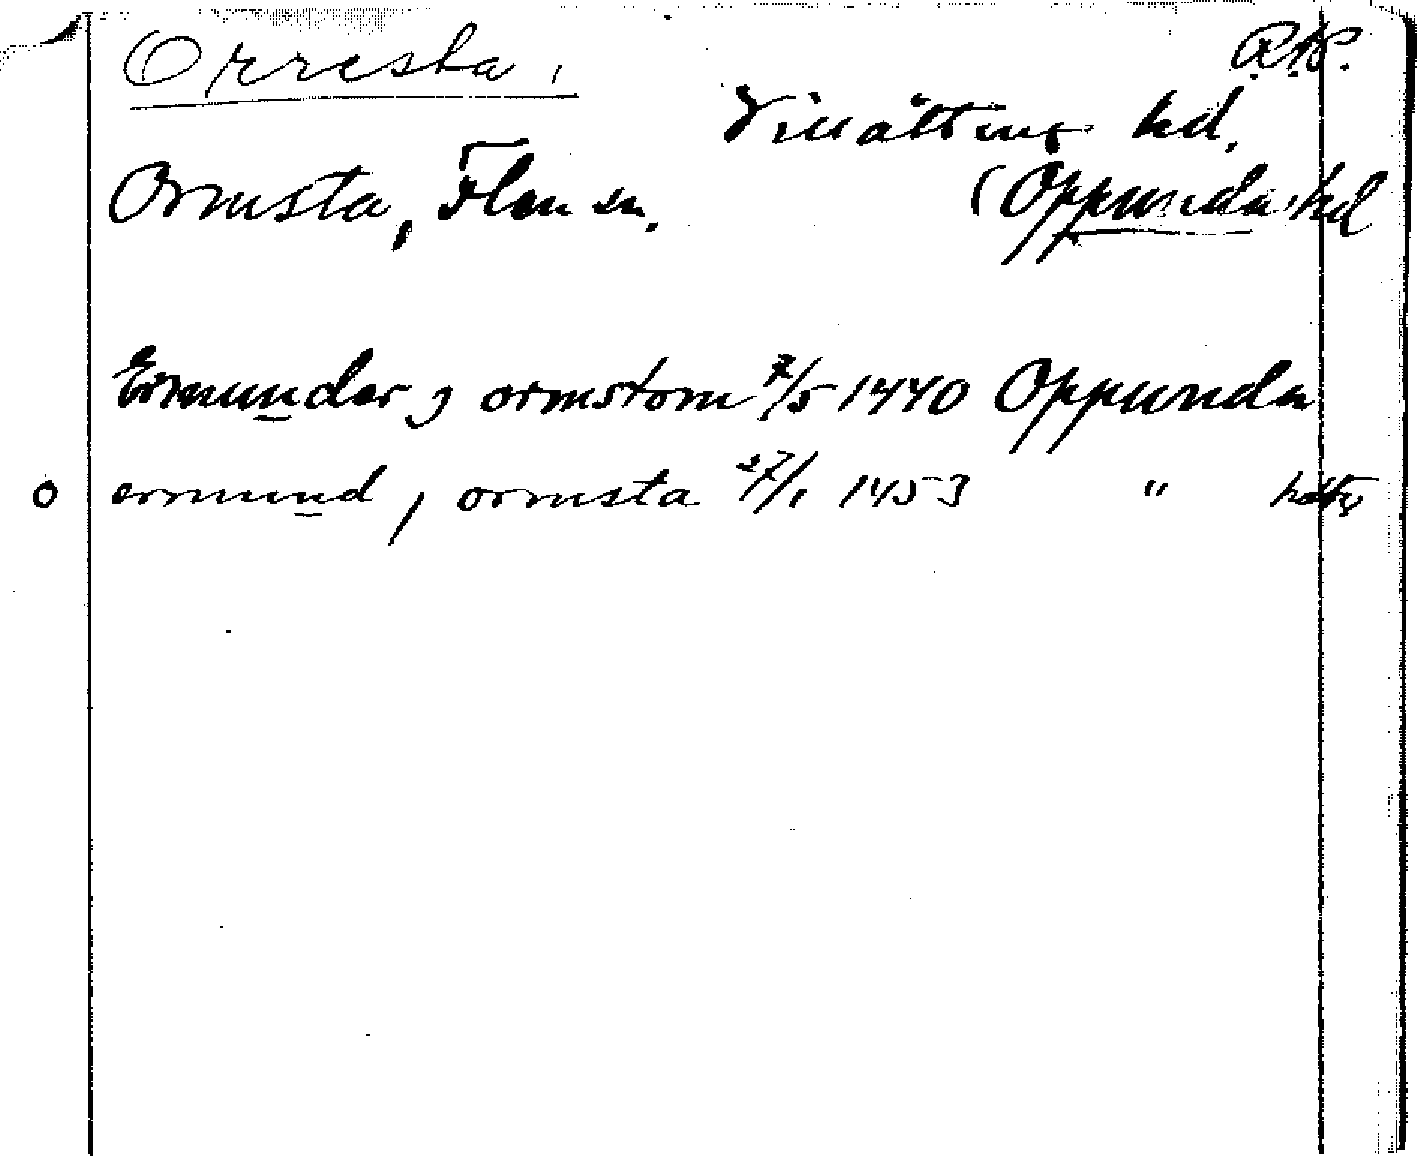 Orresta, R.A.P.
Villåttinge hd.
Ormsta, Flen sn. (Oppunda hd
Ermunder j ormstom 7/5 1440 Oppunda
o ermund j ormsta 27/1 1453 "